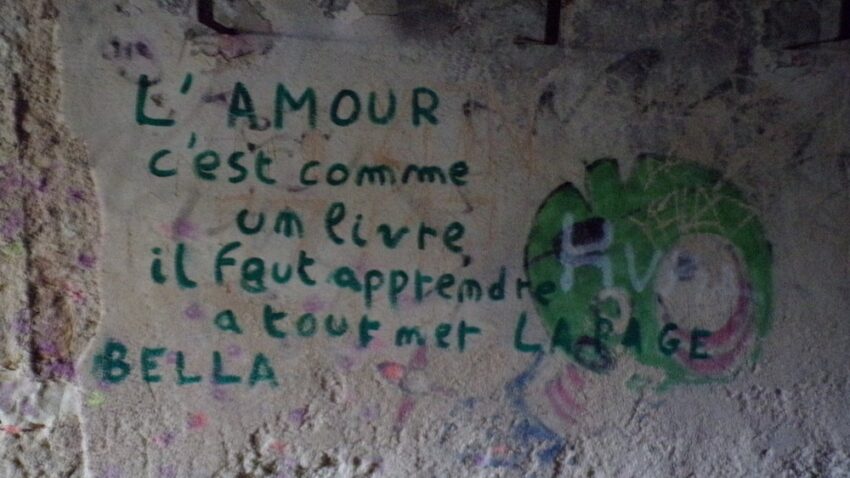 L'AMOUR
c'est comme
un livre,
il faut apprendre
a tour mer LA PAGE
BELLA